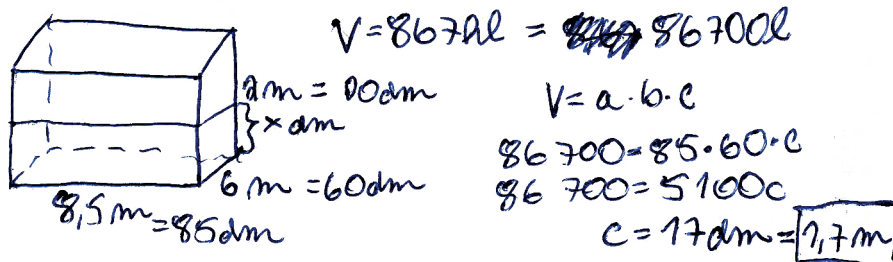 V=867hl = 86700l
2m = 20dm
x dm
6m = 60dm
8,5m
=85dm
V= a·b·c
86 700=85·60·c
86 700= 5100c
c = 17dm = 1,7m